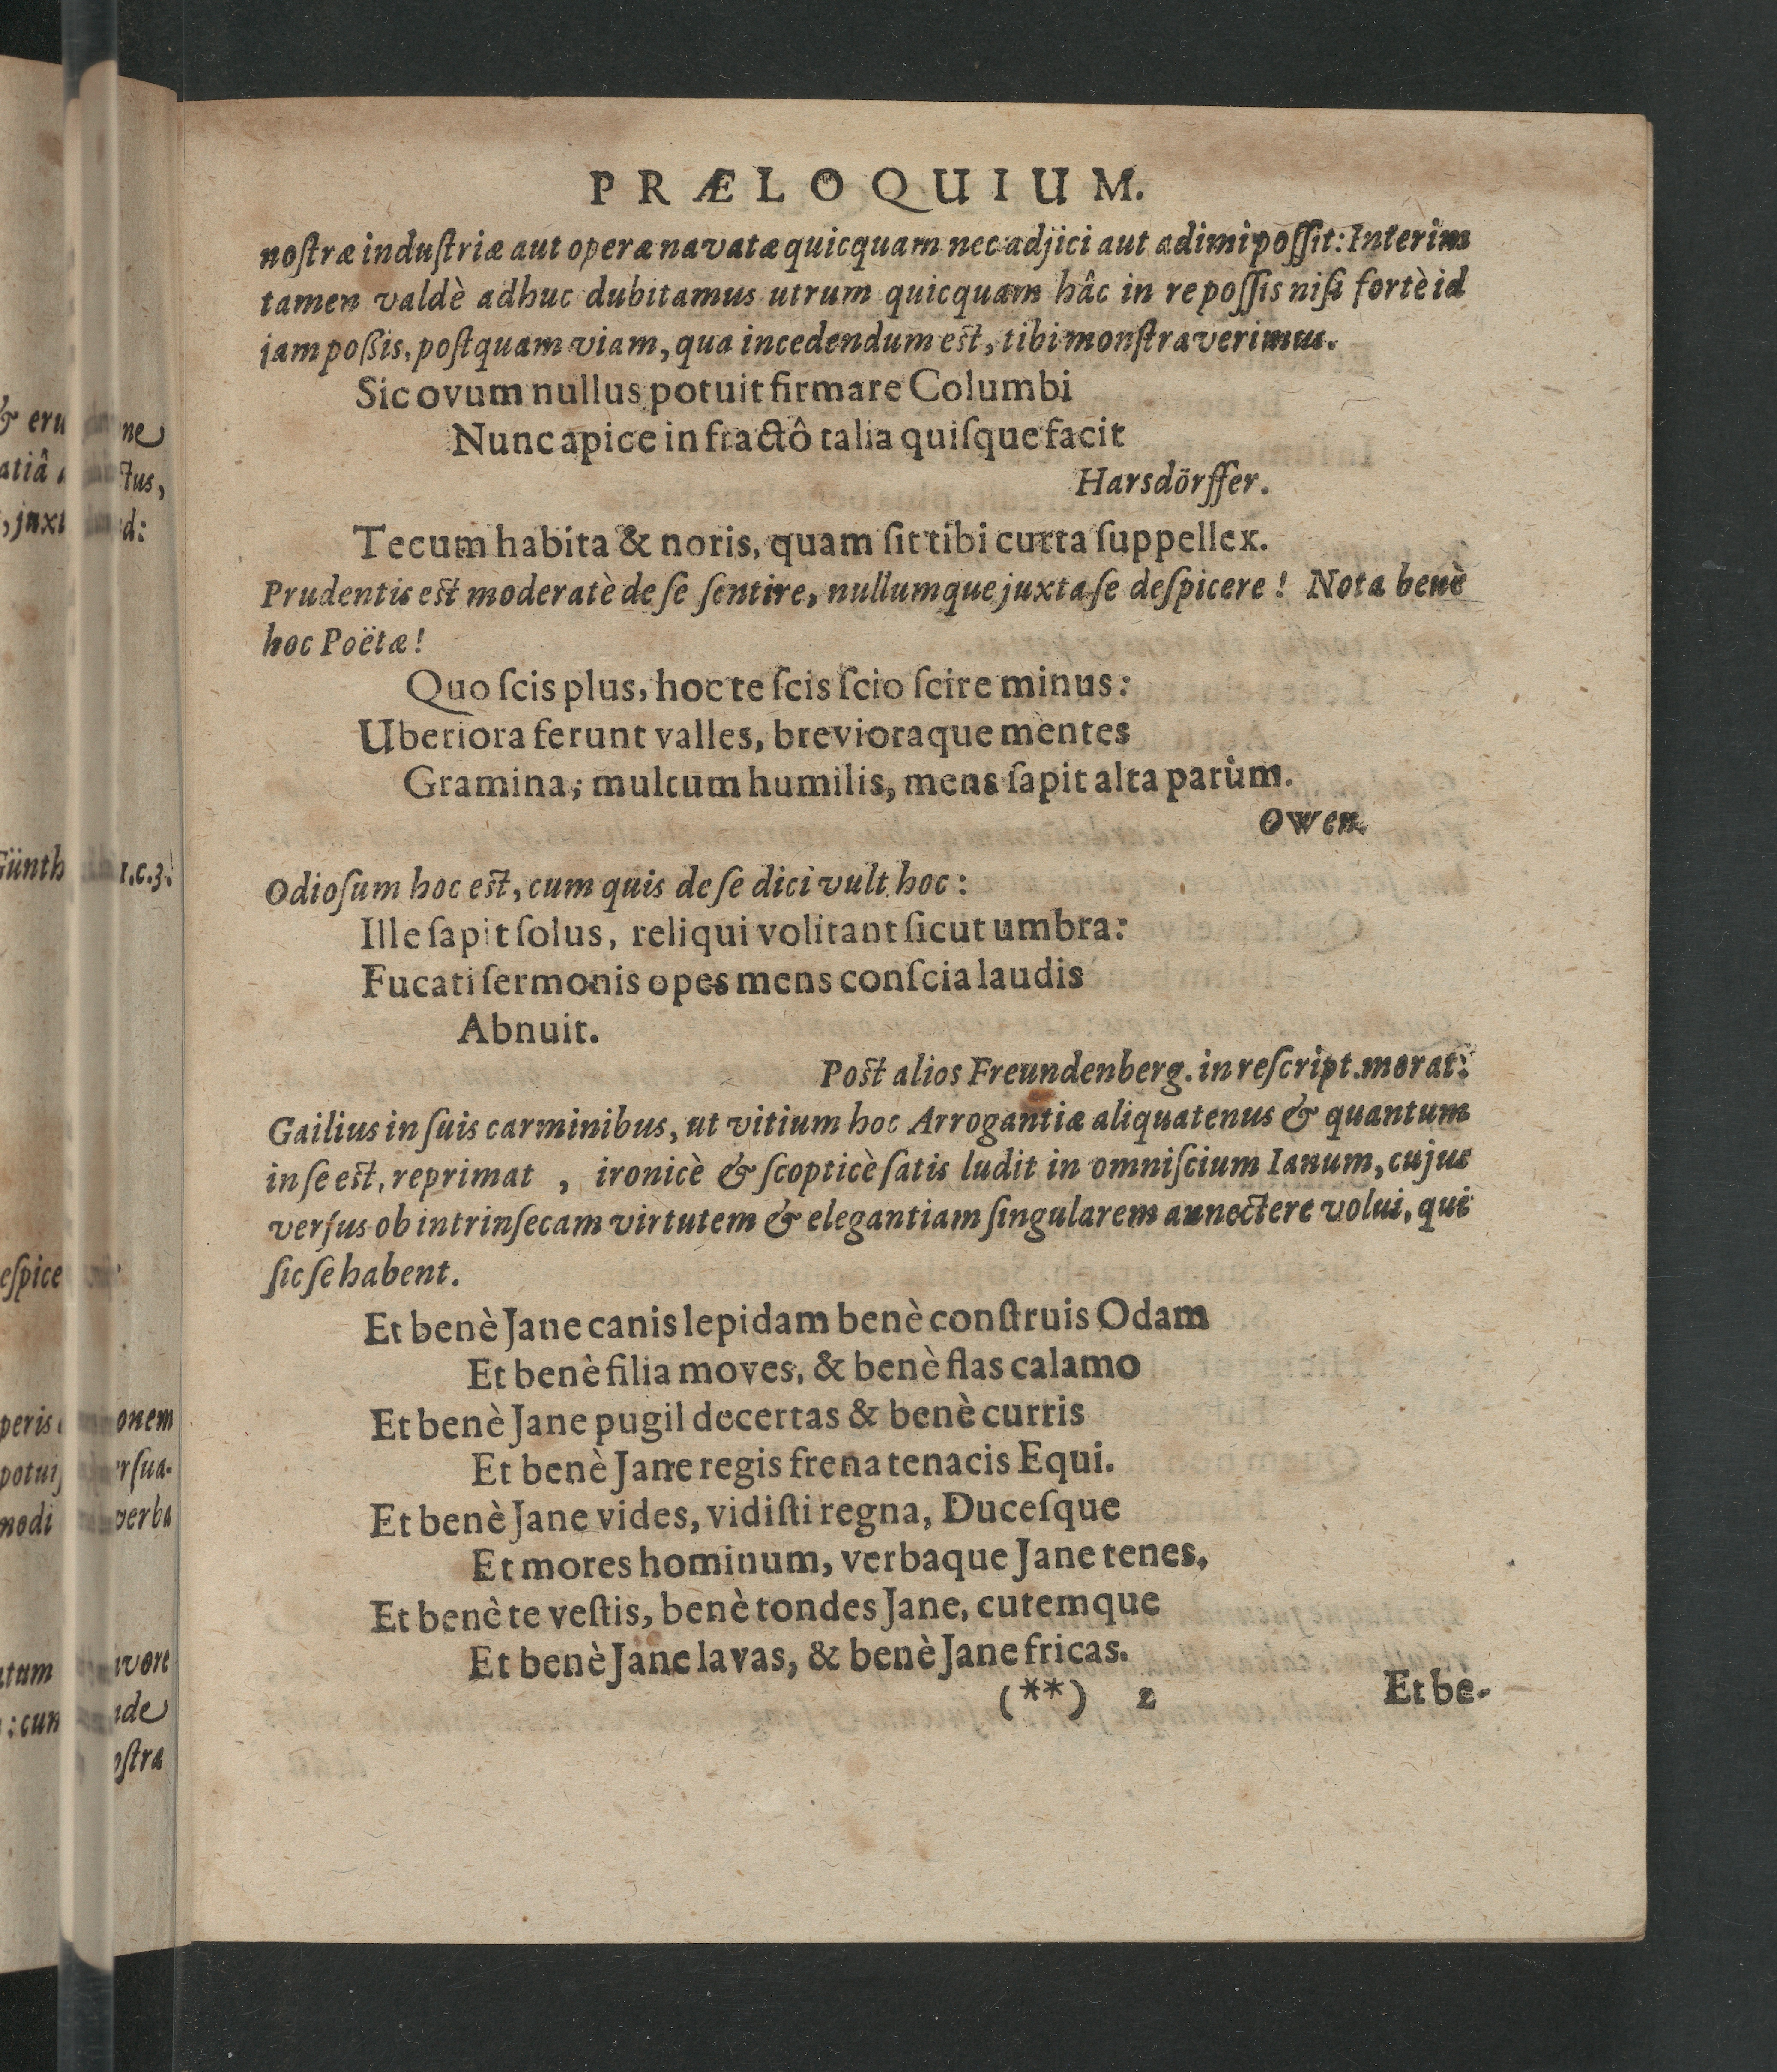 PRÆLOQUIUM.
noſtræ induſtriæ aut operæ navatæ quicquam nec adjici aut adimi poſſit: Interim
tamen valdè adhuc dubitamus utrum quicquam hâc in re poſſis niſi fortè id
jam poßis, poſtquam viam, qua incedendum eſt, tibi monſtraverimus.
Sic ovum nullus potuit firmare Columbi
Nunc apice in fractô talia quiſque facit
Harsdörffer.
Tecum habita & noris, quam ſit tibi curta ſuppellex.
Prudentis eſt moderatè de ſe ſentire, nullumque juxta ſe deſpicere! Nota benè
hoc Poëtæ!
Quo ſcis plus, hoc te ſcis ſcio ſcire minus:
Uberiora ferunt valles, brevioraque mentes
Gramina; multum humilis, mens ſapit alta parùm.
Owen.
Odioſum hoc eſt, cum quis de ſe dici vult hoc:
Ille ſapit ſolus, reliqui volitant ſicut umbra:
Fucati ſermonis opes mens conſcia laudis
Abnuit.
Poſt alios Freundenberg. in reſcript. morat.
Gailius in ſuis carminibus, ut vitium hoc Arrogantiæ aliquatenus & quantum
in ſe eſt, reprimat , ironicè & ſcopticè ſatis ludit in omniſcium Ianum, cujus
verſus ob intrinſecam virtutem & elegantiam ſingularem annectere volui, qui
ſic ſe habent.
Et benè Jane canis lepidam benè conſtruis Odam
Et benè filia moves, & benè flas calamo
Et benè Jane pugil decertas & benè curris
Et benè Jane regis frena tenacis Equi.
Et benè Jane vides, vidiſti regna, Duceſque
Et mores hominum, verbaque Jane tenes,
Et benè te veſtis, benè tondes Jane, cutemque
Et benè Jane lavas, & benè Jane fricas.
(**) 2 Et be-